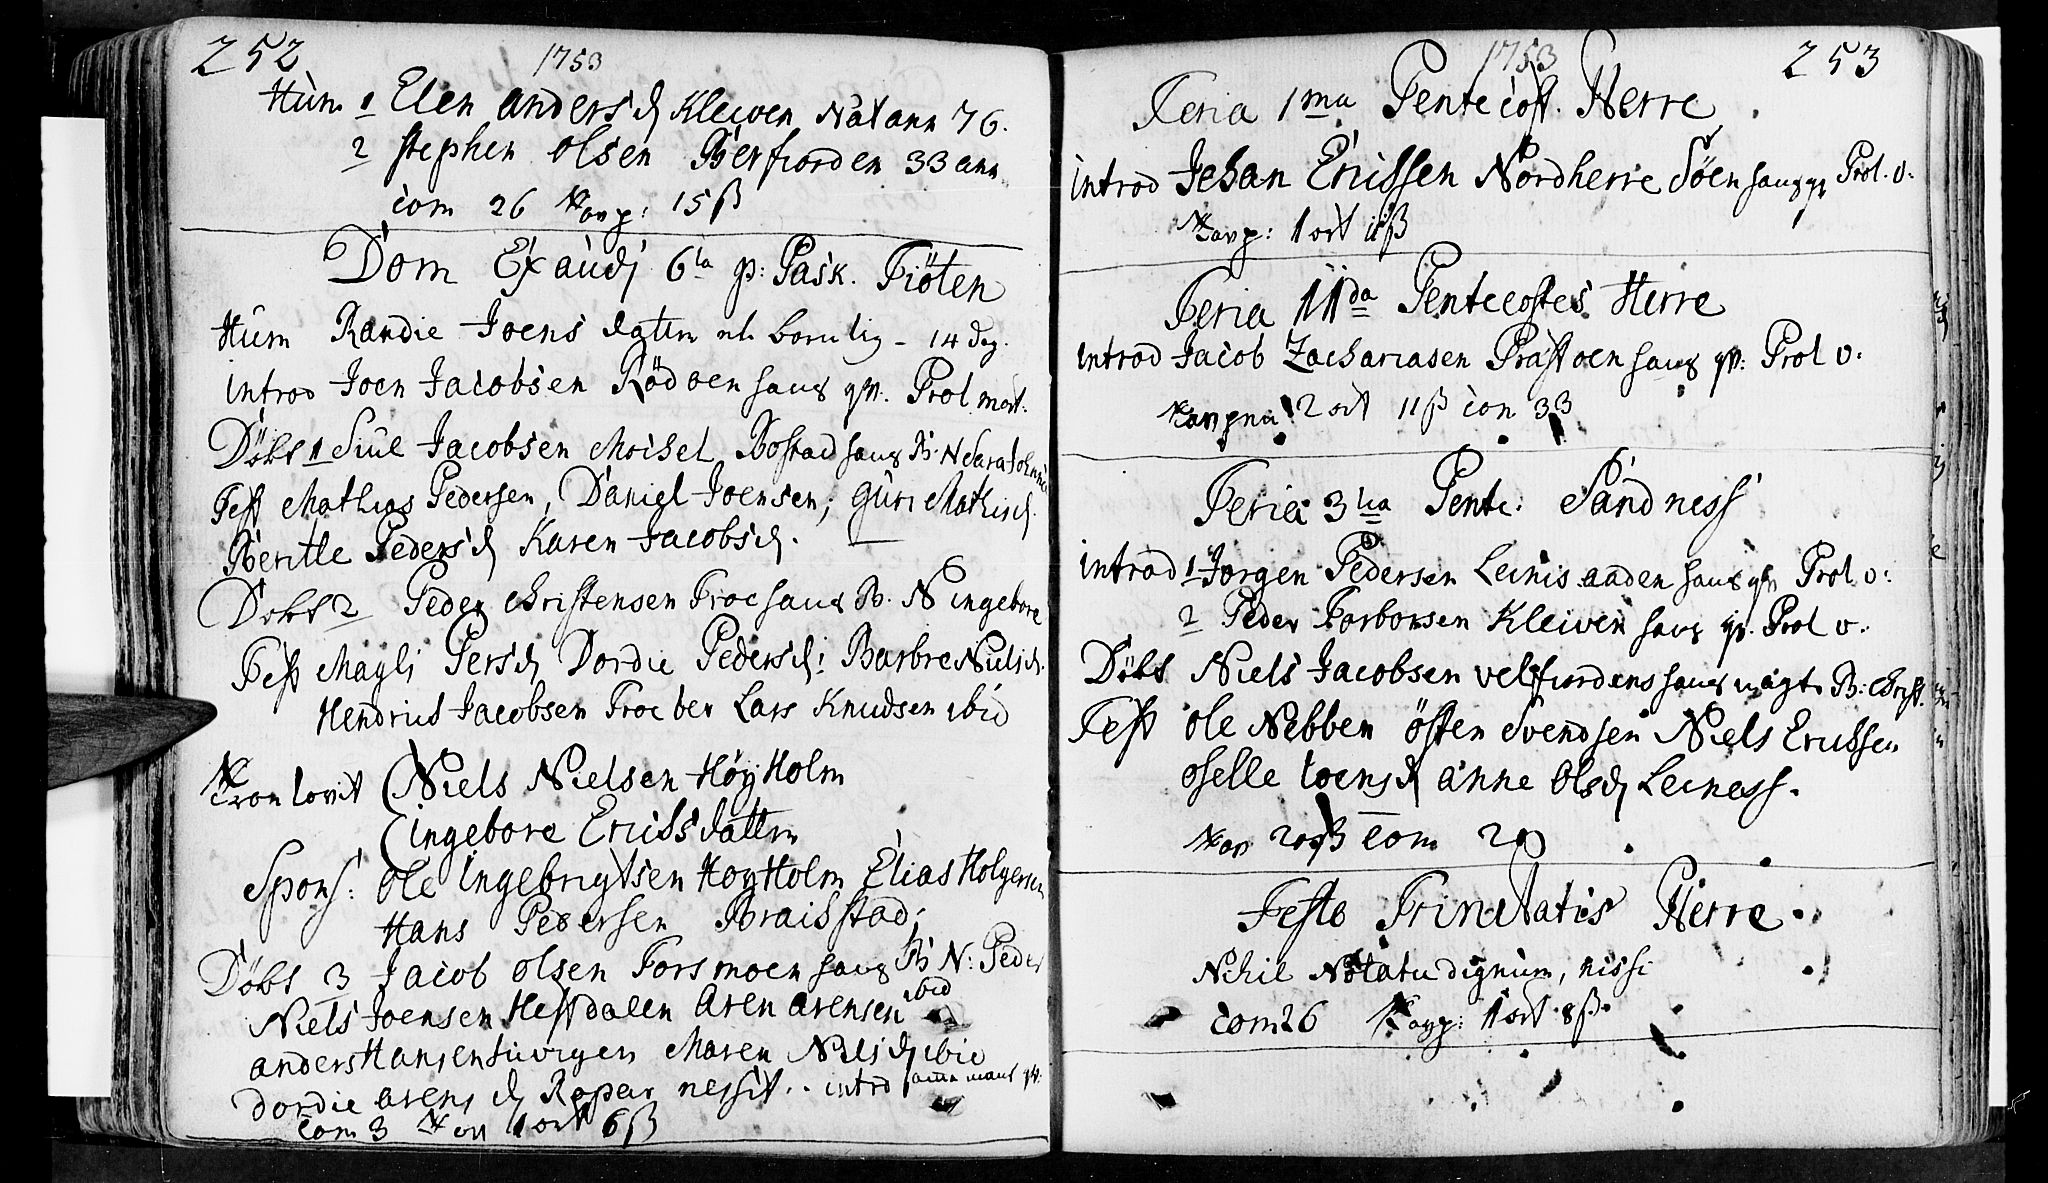 252
1753
Hum 1 Elen anders d Kleiven Nat ann 76.
2 stephen olsen Bierfiorden 33 ann
com 26 Tavp: 15 ß
Dom Exaudj 6ta p: Pask. Tiöten
Hum Randie Joens datter 14 dog.
introd Joen Jacobsen Rödöen hans qv. Prol mort.
Döbt 1 Siul Jacobsen Moisel Bostad hans B. N Sara
Test Mathias Pedersen, Daniel Joensen, Guri Mathisd.
Beritte Peders d Karen Jacobs d.
Döbt 2 Peder Christensen Troe hans B. N ingebore
Test Magli Pers d Dordie Peders d: Barbre Niels d.
Hendrich Jacobsen Troe ber Lars Knudsen ibid
Tron lovit Niels Nielsen Höyholm
ingebore Erichs datter
Spons: Ole Ingebrigtsen Hoyholm Elias Holgersen
Hans Pedersen Braisstad;
Döbt 3 Jacob olsen Forsmoen hans B N: Peder
Niels Joensen Hestdalen Aren arensen ibid
anders Hansen Maren Niels d ibid
dordie arens d nessit .. introd
com 3 1 ort 6 ß
1753
253
Feria 1ma Pentecost. Herre
introd Johan Erichsen Nordherre Söen hans qv Prol. v.
Tavp: 1 ort 11 ß
Feria IIda Pentecostes Herre
introd Jacob Zachariasen Præstöen hans qv: Prol v:
2 ort 11 ß con 33
Feria 3tia Pente: Sandness
introd 1 Jörgen Pedersen Leinis anden hans qv Prol v:
2 Peder Torborsen Kleiven hans qv. Prol v.
Döbt Niels Jacobsen velfiordens hans B: Christ.
Test Ole Nebben östen Svendsen Niels Erichsen
oselle toens d anne Ols d Leiness.
com 29
Festo Trinitatis Herre.
Nihil Notatu dignum, nissi
com 26 Tavp: 1 ort 8 ß.